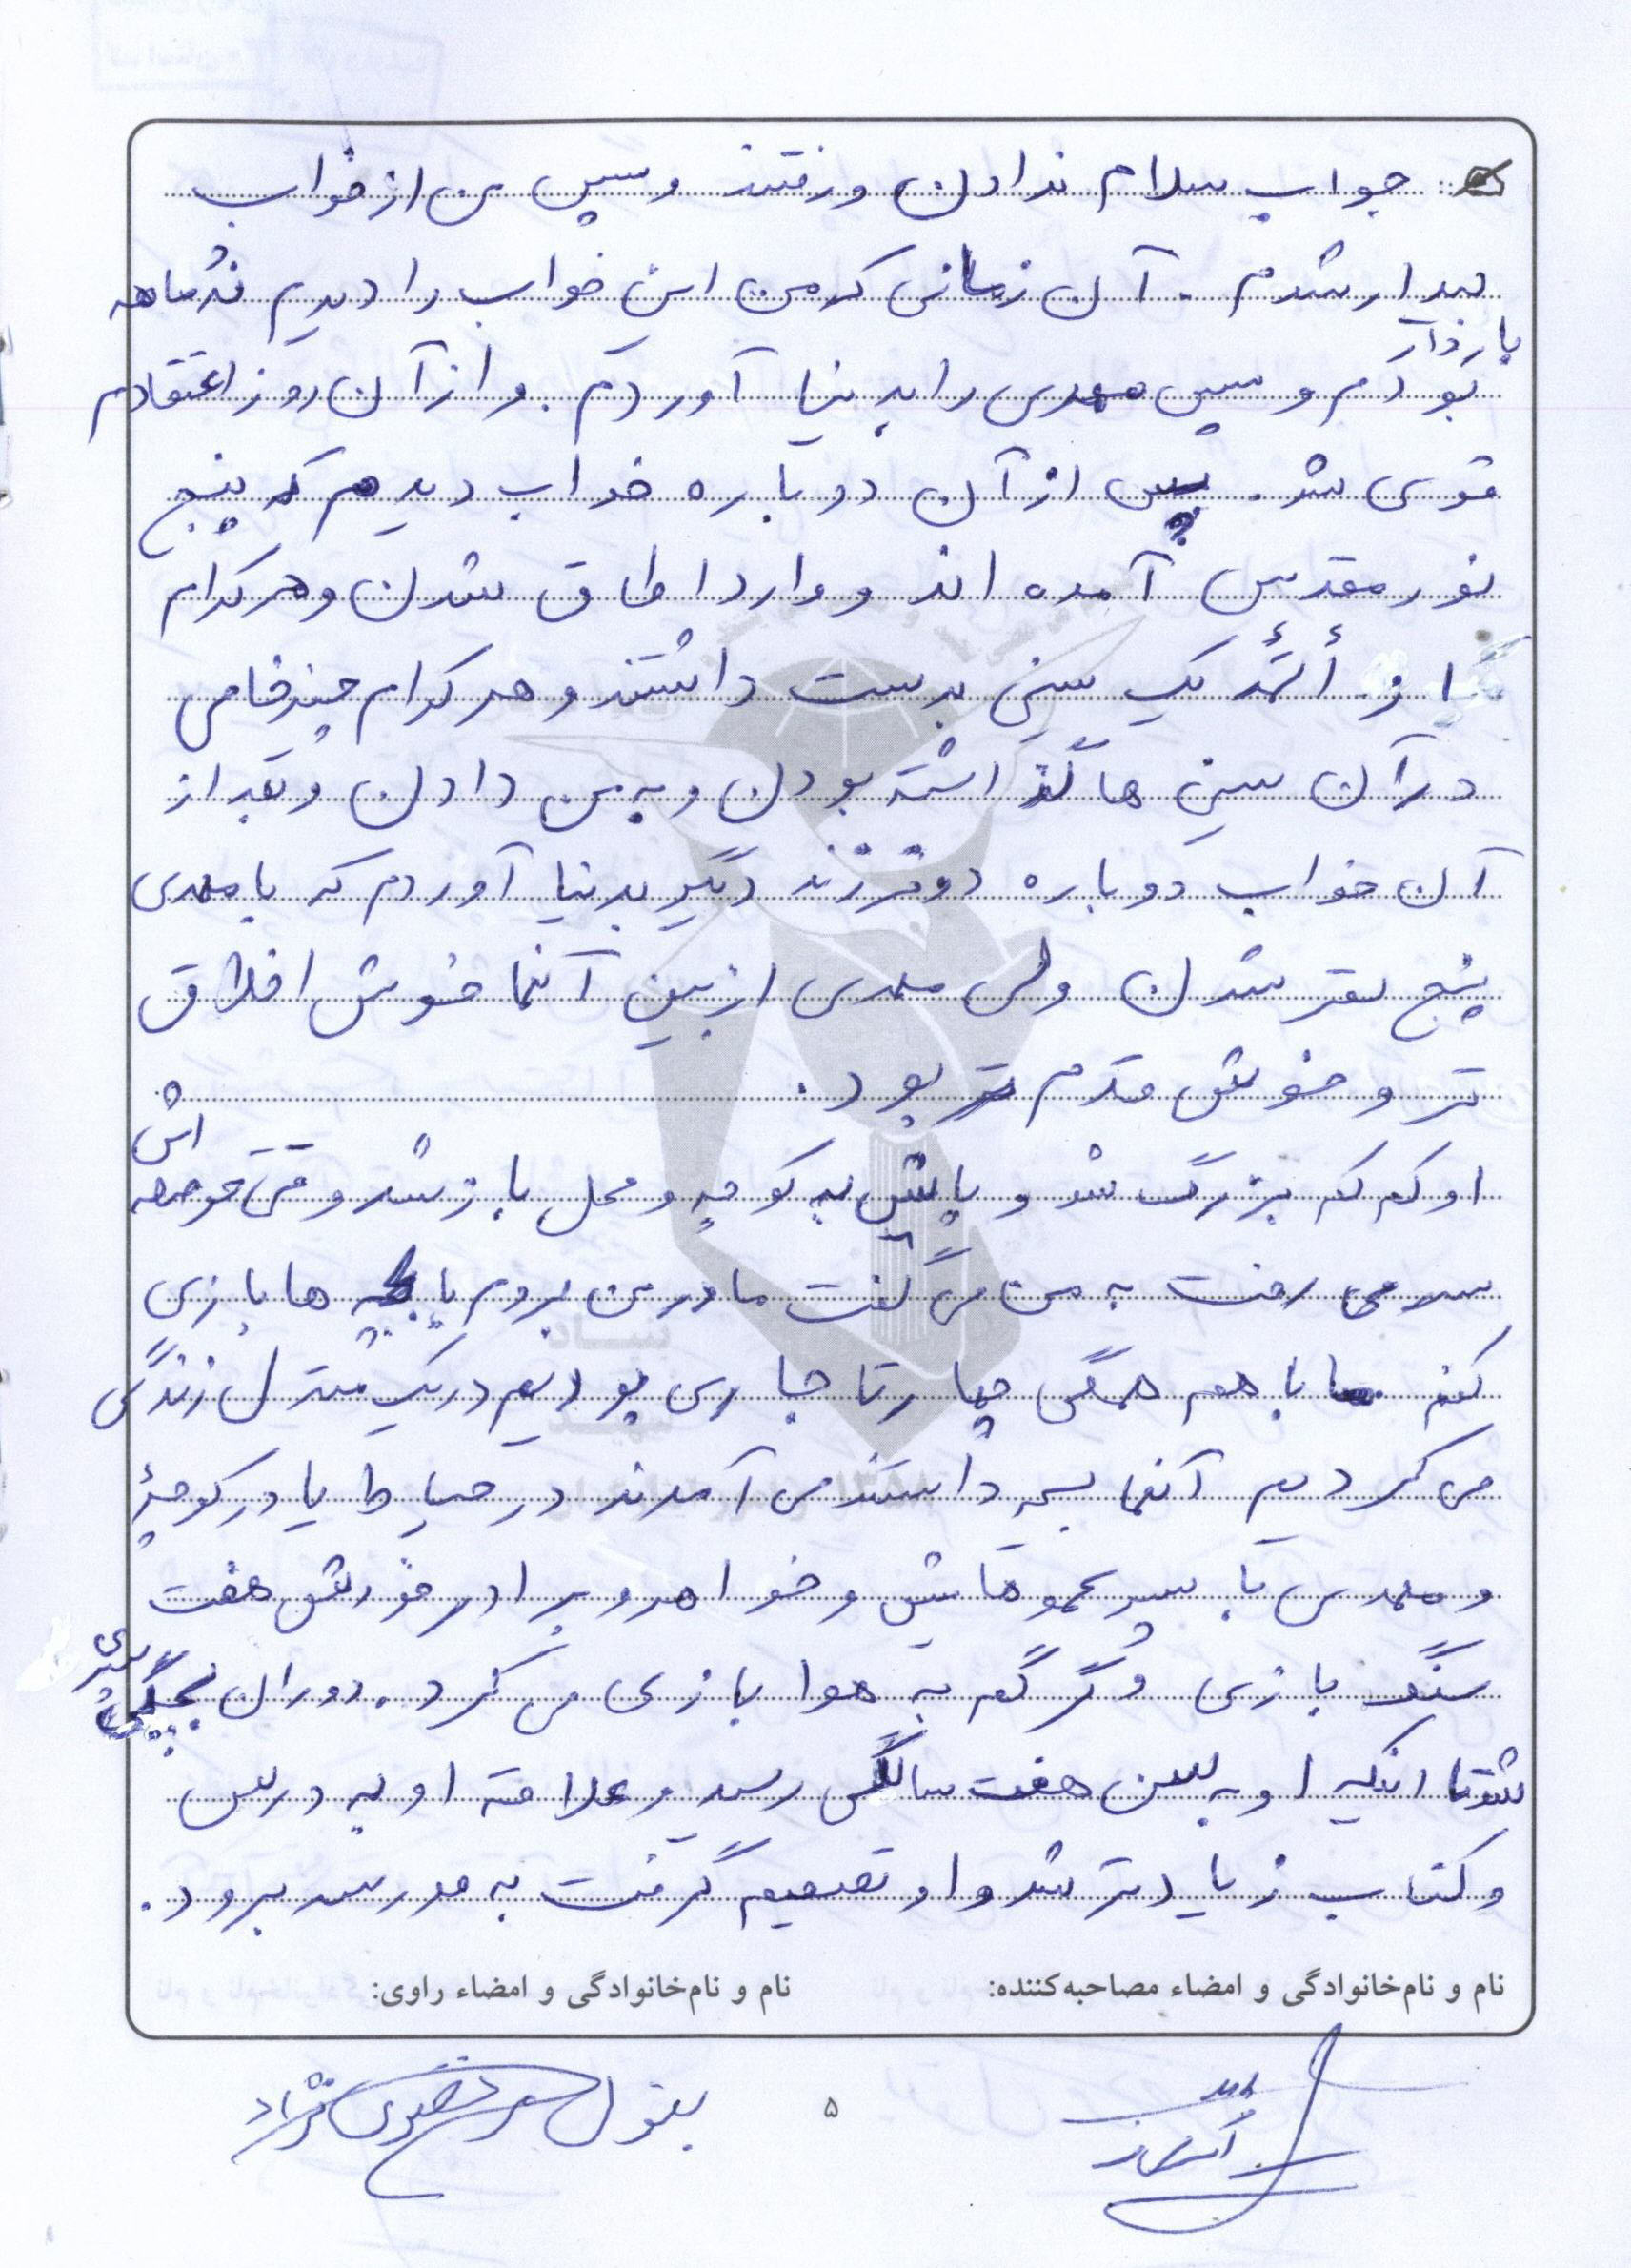 جواب سلام ندادن ورفتند و سپس من از خواب
بیدار شدم . آن زمانی که من این خواب را دیدم نه ماهه
باردار
بودم و سپس مهدی را به دنیا آوردم . و از آن روز اعتقادم
قوی شد . پس از آن دوباره خواب دیدم که پنج
نور مقدس آمده اند و وارد اطاق شدن و هر کدام
از أئمّه یک سینی بدست داشتند و هر کدام چیز خاصی
در آن سینی ها گذاشته بودن و به من دادن و بعد از
آن خواب دوباره دو فرزند دیگر بدنیا آوردم که با مهدی
پنج نفر شدن ولی مهدی از بین آنها خوش اخلاق
تر و خوش قدم تر بود .
اش
او کم کم بزرگ شد و پایش به کوچه و محل باز شد وقتی حوصله
سر می رفت به من می گفت مادر من بروم با بچه ها بازی
کنم ما با هم همگی چهار تا جاری بودیم در یک منزل زندگی
می کردیم آنها بچه داشتند می آمدند در حیاط یا در کوچۀ
و مهدی با پسر عموهایش و خواهر و برادر خودش هفت
سنگ بازی و گرگم به هوا بازی می کرد . دوران بچگی سپری
شد تا اینکه او به سن هفت سالگی رسید و علاقه او به درس
و کتاب زیادتر شد و او تصمیم گرفت به مدرسه برود .
نام و نام‌خانوادگی و امضاء مصاحبه‌کننده:
نام و نام‌خانوادگی و امضاء راوی:
بتول
۵